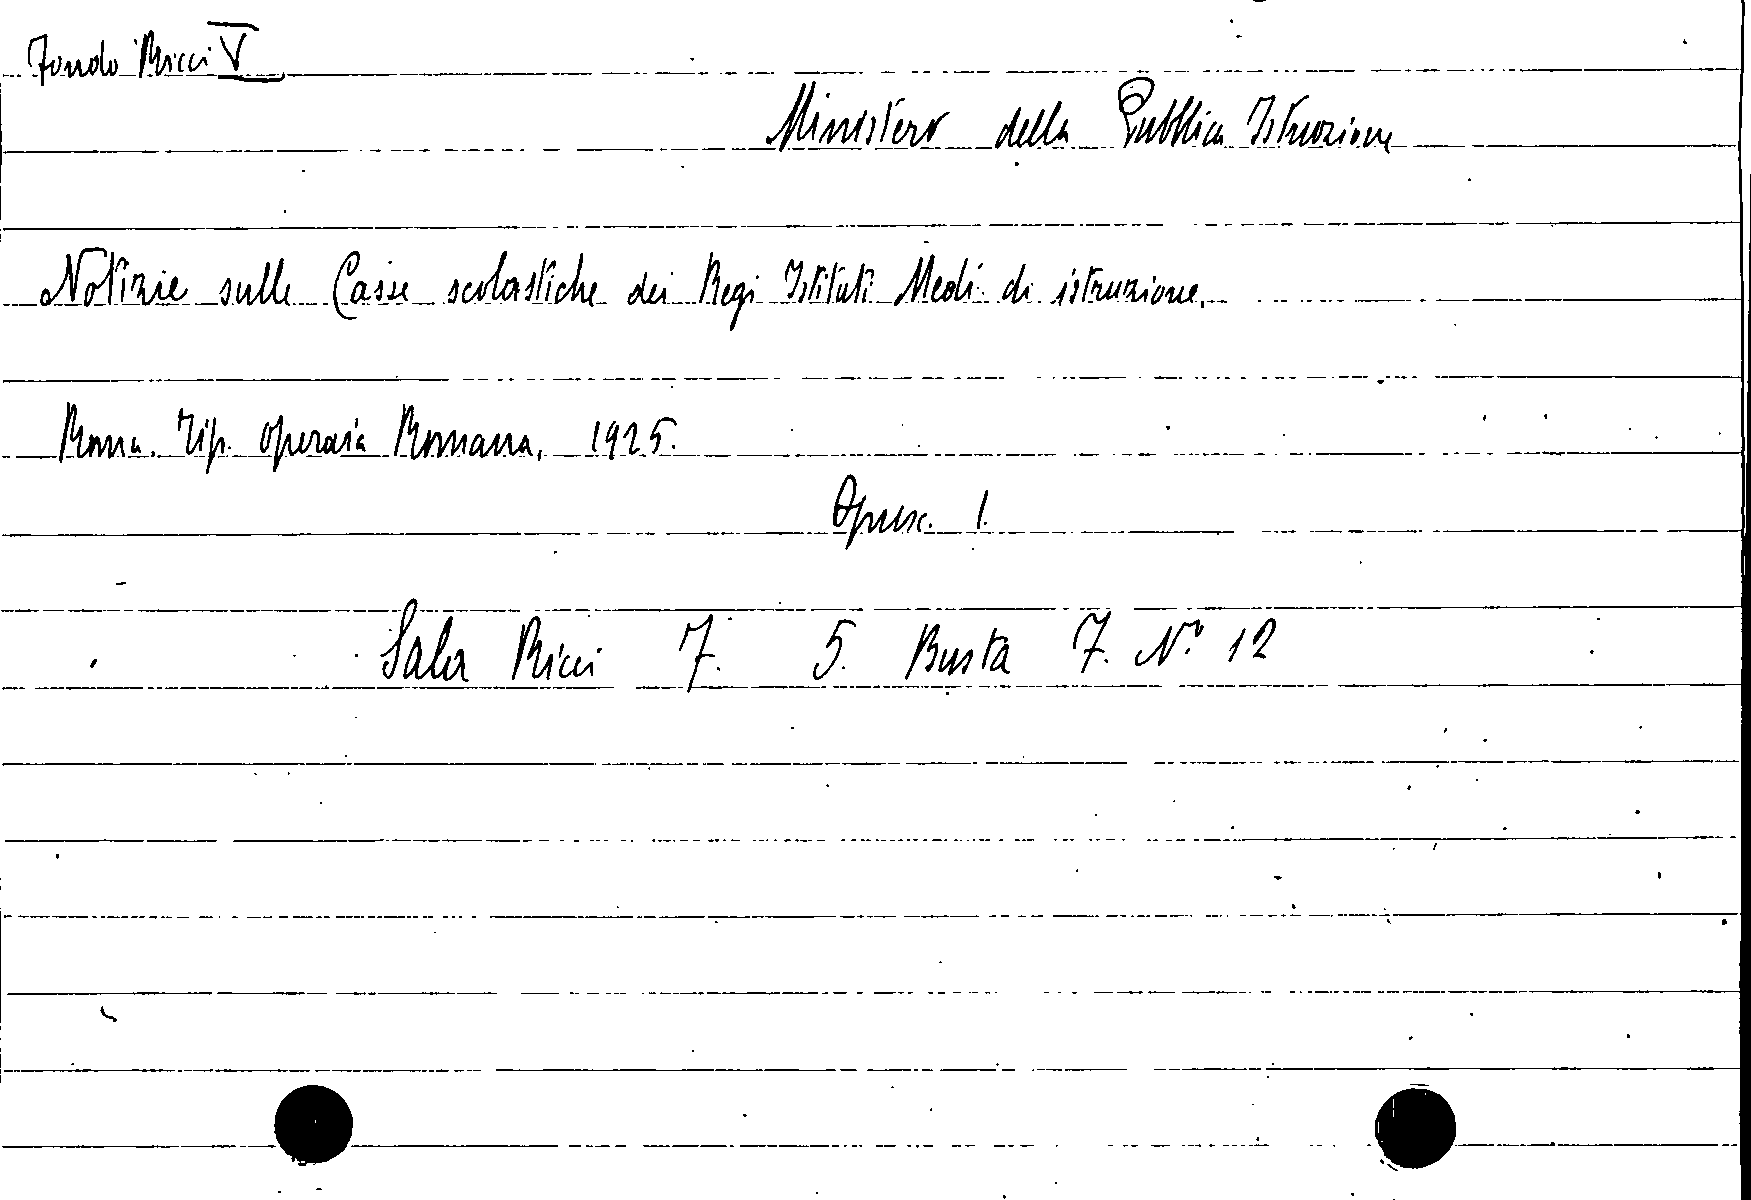 Fondo Ricci V
Ministero della Pubblica Istruzione
Notizie sulle Casse scolastiche dei Regi Istituti Medi di istruzione.
Roma. Tip. Operaia Romana, 1925.
Opusc. 1.
Sala Ricci 7. 5. Busta 7. N.º 12